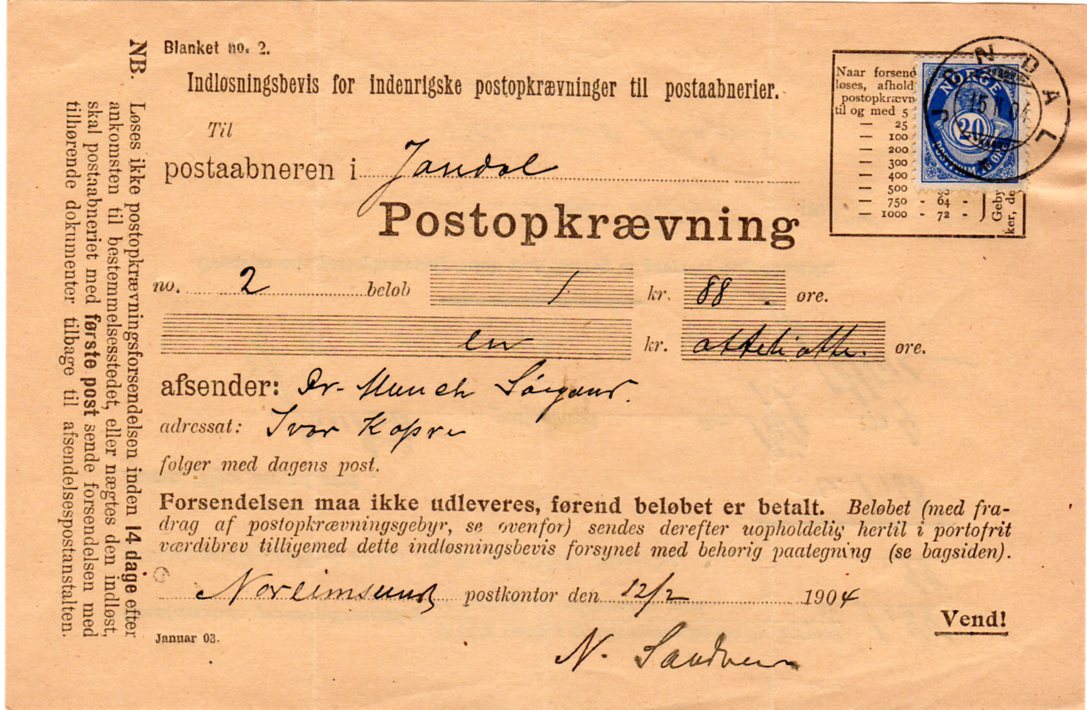 Blanket no. 2.
Indløsningsbevis for indenrigske postopkrævninger til postaabnerier.
Til
postaabneren i Jondal
Postopkrævning
no. 2 beløb 1 kr. 88 øre.
en kr. ottetiotte øre.
afsender: Dr. Munch Søegaard.
adressat: Ivar
følger med dagens post.
Forsendelsen maa ikke udleveres, førend beløbet er betalt. Beløbet (med fra-
drag af postopkrævningsgebyr, se ovenfor) sendes derefter uopholdelig hertil i portofrit
værdibrev tilligemed dette indløsningsbevis forsynet med behørig paategning (se bagsiden).
Noreimsund postkontor den 12/2 1904
Vend!
Januar 03.
N. Sandven
NB. Løses ikke postopkrævningsforsendelsen inden 14 dage efter
ankomsten til bestemmelsesstedet, eller nægtes den indløst,
skal postaabneriet med første post sende forsendelsen med
tilhørende dokumenter tilbage til afsendelsespostanstalten.
Naar forsend
løses, afhold
postopkrævn
til og med 5
— 25
— 100
— 200
— 300
— 400
— 500
— 750 - 64 -
— 1000 - 72 -
Geby
ker, de
NORGE
20
JONDAL
15 II 04